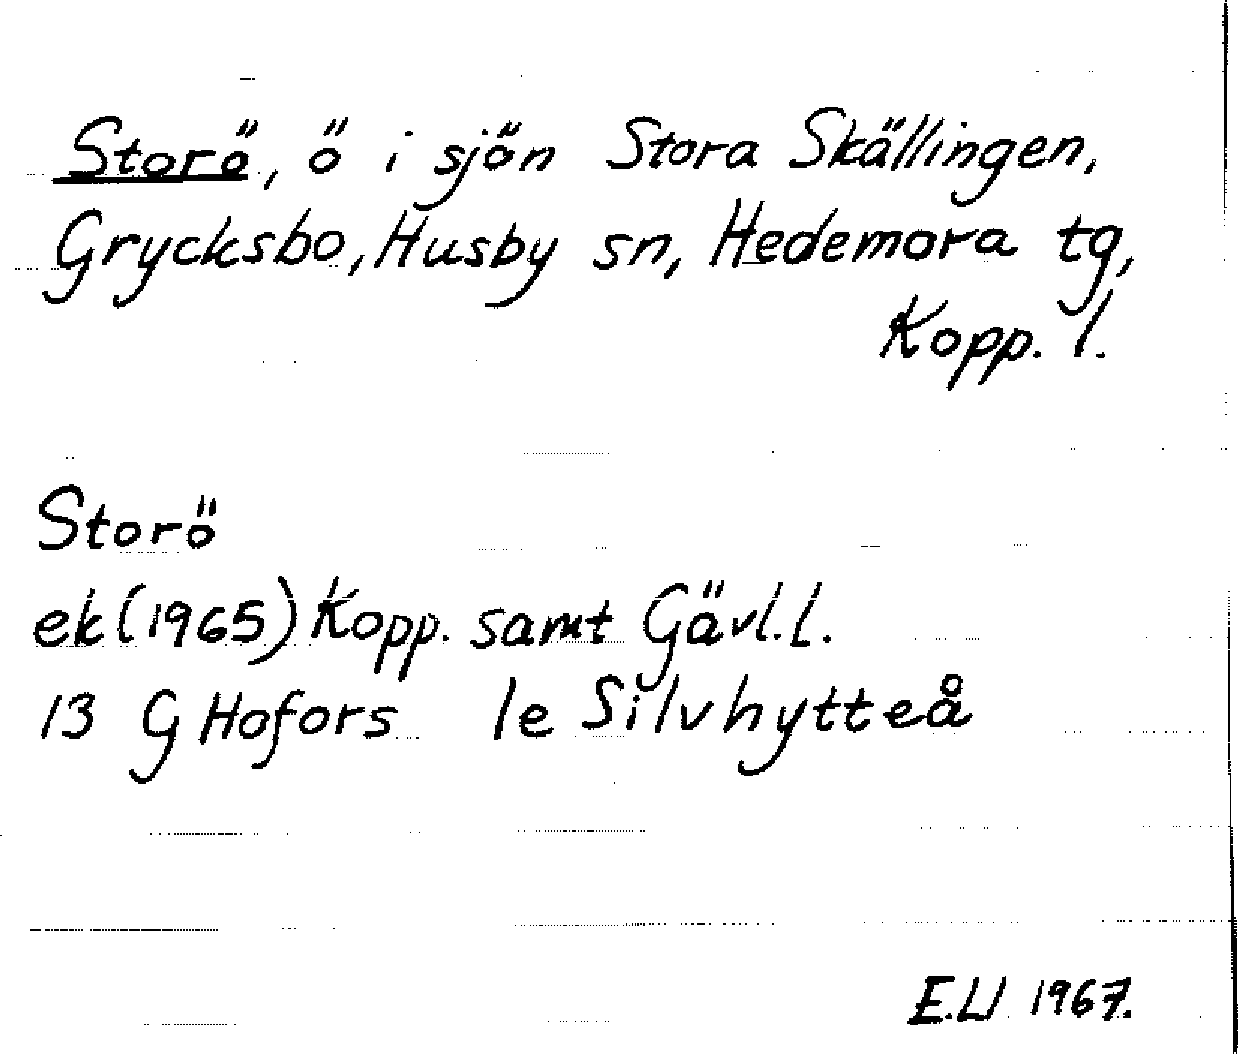 Storö, ö i sjön Stora Skällingen,
Grycksbo, Husby sn, Hedemora tg,
Kopp. l.
Storö
ek (1965) Kopp. samt Gävl. l.
13 G Hofors le Silvhytteå
1967.